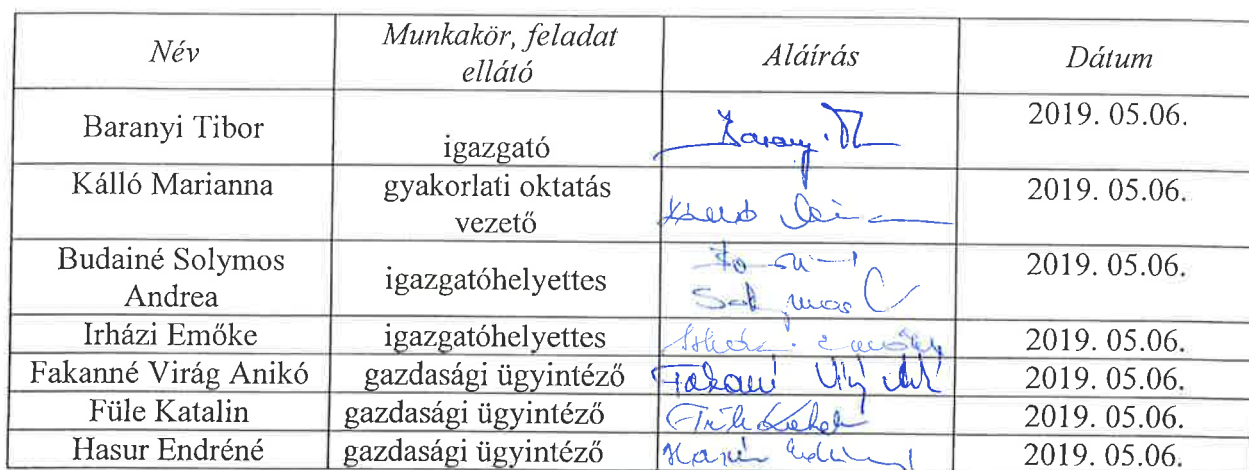 Név Munkakör, feladat ellátó Aláírás Dátum
Baranyi Tibor igazgató 2019. 05.06.
Kálló Marianna gyakorlati oktatás vezető 2019. 05.06.
Budainé Solymos Andrea igazgatóhelyettes 2019. 05.06.
Irházi Emőke igazgatóhelyettes 2019. 05.06.
Fakanné Virág Anikó gazdasági ügyintéző 2019. 05.06.
Füle Katalin gazdasági ügyintéző 2019. 05.06.
Hasur Endréné gazdasági ügyintéző 2019. 05.06.